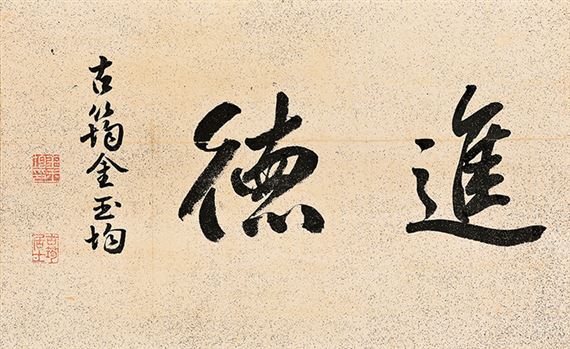 進德
古筠金玉均